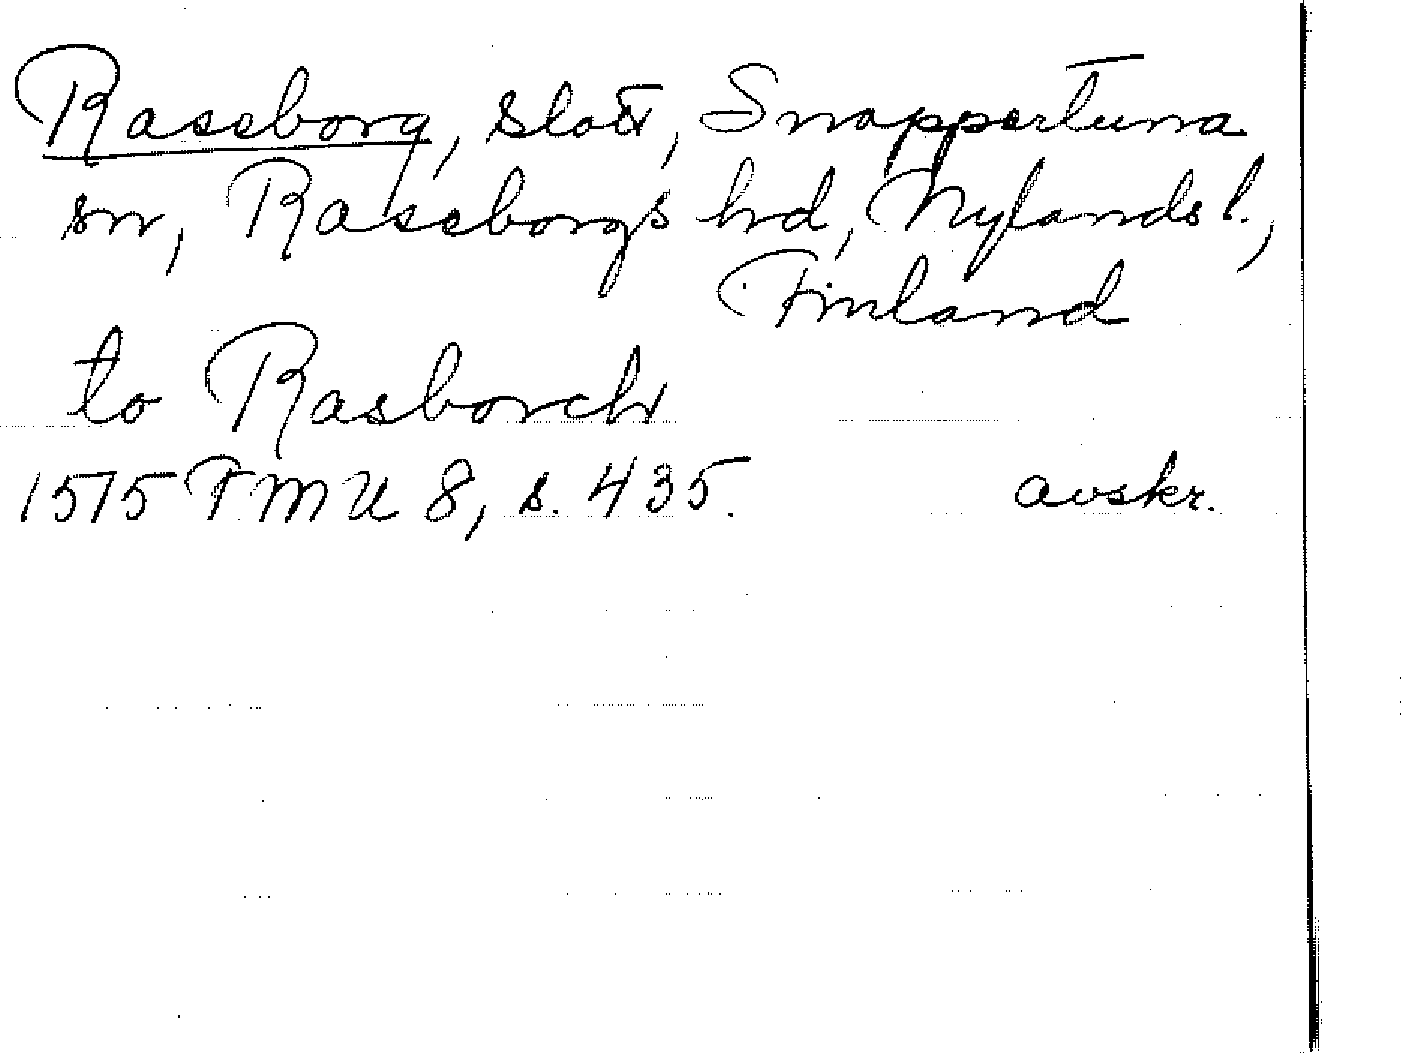 Raseborg, slott, Snappertuna
sn, Raseborgs hd, Nylands l.,
Finland
to Rasborch
1515 FMU 8, s. 435. avskr.